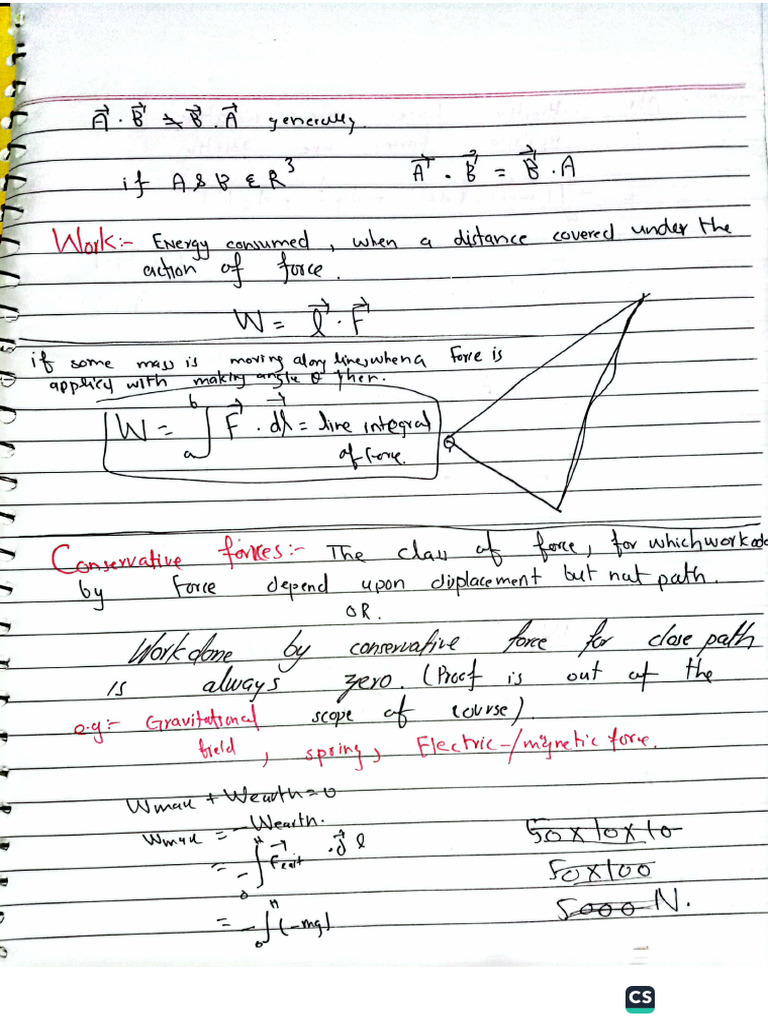 A⃗ . B⃗ ≠ B⃗ . A⃗ generally.
if A & B ∈ R³ A⃗ . B⃗ = B⃗ . A
Work:- Energy consumed, when a distance covered under the
action of force.
W = l⃗ . F⃗
if some mass is moving along line, when a force is
applied with making angle θ then.
W = ∫ₐᵇ F⃗ . dl⃗ = line integral
of force.
Conservative forces:- The class of force, for which work
by force depend upon displacement but not path.
OR.
Work done by conservative force for close path
is always zero. (Proof is out of the
e.g:- Gravitational scope of course).
field, spring, Electric-/magnetic force.
+ Wearth = 0
= -Wearth.
= -∫₀ᴴ . d⃗l
= -∫₀ᴴ (-mg)
50 x 10 x 10
50 x 100
5000 N.
CS